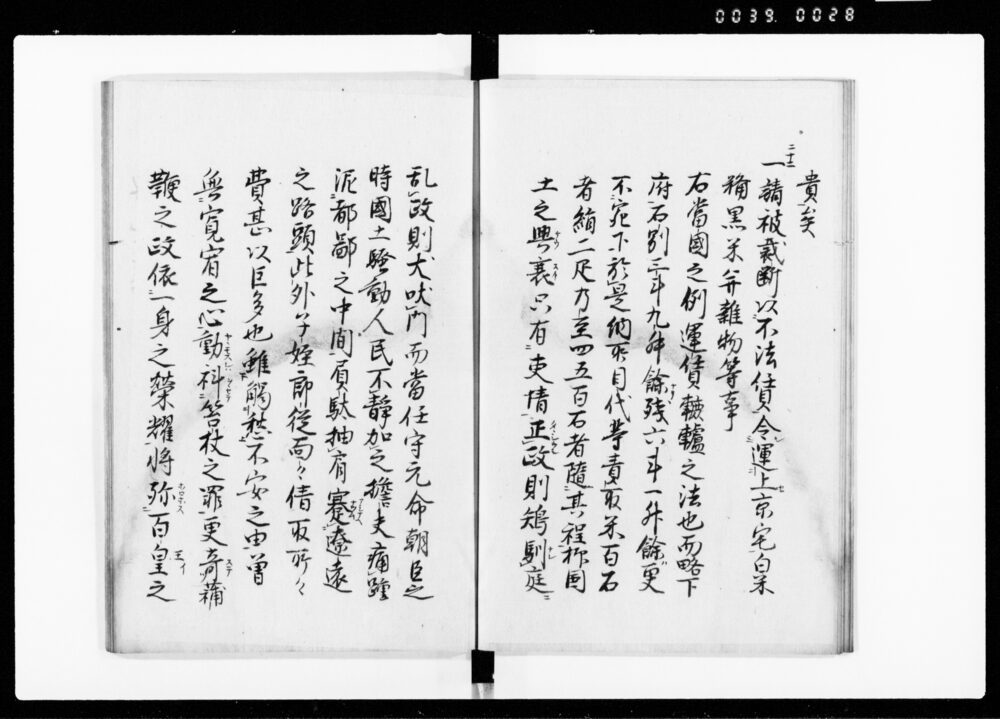 0039. 0028
貴矣
二十三
一請被裁断以不法賃令運上京宅白米
糒黒米并雑物等事
右當國之例運賃轆轤之法也而略下
府石別三斗九舛餘残六斗一升餘更
不宛下於是納所目代等責取米百石
者絹二疋乃至四五百石者随其程抑国
土之興衰只有吏情正政則鳩馴庭
乱政則犬吠門而當任守元命朝臣之
時國土騒動人民不静加之擔夫痛踵
泥都鄙之中間屓駄抽肩蹇遼遠
之路頭此外子姪郎従面々借取所々
費甚以巨多也雖觸愁不安之由曽
無寛宥之心動科笞杖之罪更奇蒲
鞭之政依一身之榮耀将弥百皇之
王イ